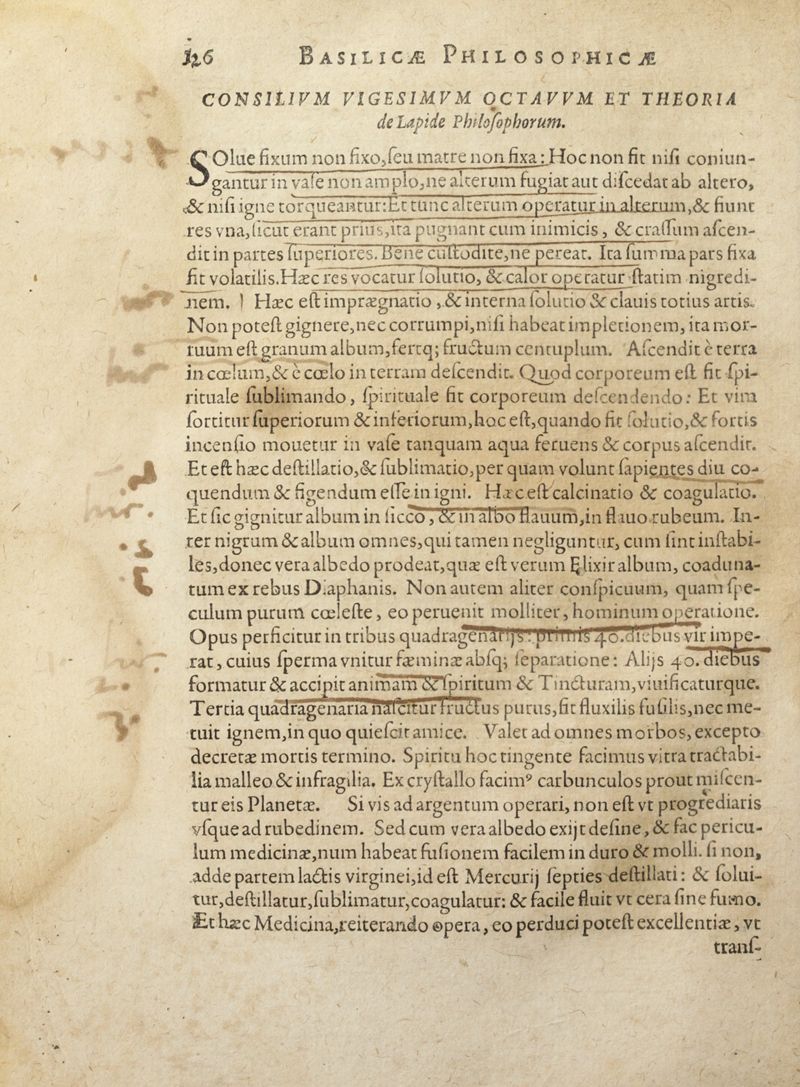 126 BASILICÆ PHILOSOPHICÆ
CONSILIVM VIGESIMVM OCTAVVM ET THEORIA
de Lapide Philoſophorum.
SOlue fixum non fixo, ſeu matre non fixa: Hoc non fit niſi coniun-
gantur in vaſe non amplo, ne alterum fugiat aut diſcedat ab altero,
& niſi igne torqueantur: Et tunc alterum operatur in alterum, & fiunt
res vna, ſicut erant prius, ita pugnant cum inimicis, & craſſum aſcen-
dit in partes ſuperiores. Bene cuſtodite, ne pereat. Ita ſumma pars fixa
fit volatilis. Hæc res vocatur ſolutio, & calor operatur ſtatim nigredi-
nem. Hæc eſt imprægnatio, & interna ſolutio & clauis totius artis.
Non poteſt gignere, nec corrumpi, niſi habeat impletionem, ita mor-
tuum eſt granum album, fertq; fructum centuplum. Aſcendit è terra
in cœlum, & è cœlo in terram deſcendit. Quod corporeum eſt fit ſpi-
rituale ſublimando, ſpirituale fit corporeum deſcendendo: Et vim
ſortitur ſuperiorum & inferiorum, hoc eſt, quando fit ſolutio, & fortis
incenſio mouetur in vaſe tanquam aqua feruens & corpus aſcendit.
Et eſt hæc deſtillatio, & ſublimatio, per quam volunt ſapientes diu co-
quendum & figendum eſſe in igni. Hæc eſt calcinatio & coagulatio.
Et ſic gignitur album in ſicco, & in albo flauum, in flauo rubeum. In-
ter nigrum & album omnes, qui tamen negliguntur, cum ſint inſtabi-
les, donec vera albedo prodeat, quæ eſt verum Elixir album, coaduna-
tum ex rebus Diaphanis. Non autem aliter conſpicuum, quam ſpe-
culum purum cœleſte, eo peruenit molliter, hominum operatione.
Opus perficitur in tribus quadragenarijs: primis 40. diebus vir impe-
rat, cuius ſperma vnitur fæminæ abſq; ſeparatione: Alijs 40. diebus
formatur & accipit animam & ſpiritum & Tincturam, viuificaturque.
Tertia quadragenaria naſcitur fructus purus, fit fluxilis fuſilis, nec me-
tuit ignem, in quo quieſcit amice. Valet ad omnes morbos, excepto
decretæ mortis termino. Spiritu hoc tingente facimus vitra tractabi-
lia malleo & infragilia. Ex cryſtallo facimꝰ carbunculos prout miſcen-
tur eis Planetæ. Si vis ad argentum operari, non eſt vt progrediaris
vſque ad rubedinem. Sed cum vera albedo exijt deſine, & fac pericu-
lum medicinæ, num habeat fuſionem facilem in duro & molli. ſi non,
adde partem lactis virginei, id eſt Mercurij ſepties deſtillati: & ſolui-
tur, deſtillatur, ſublimatur, coagulatur: & facile fluit vt cera ſine fumo.
Et hæc Medicina, reiterando opera, eo perduci poteſt excellentiæ, vt
tranſ-